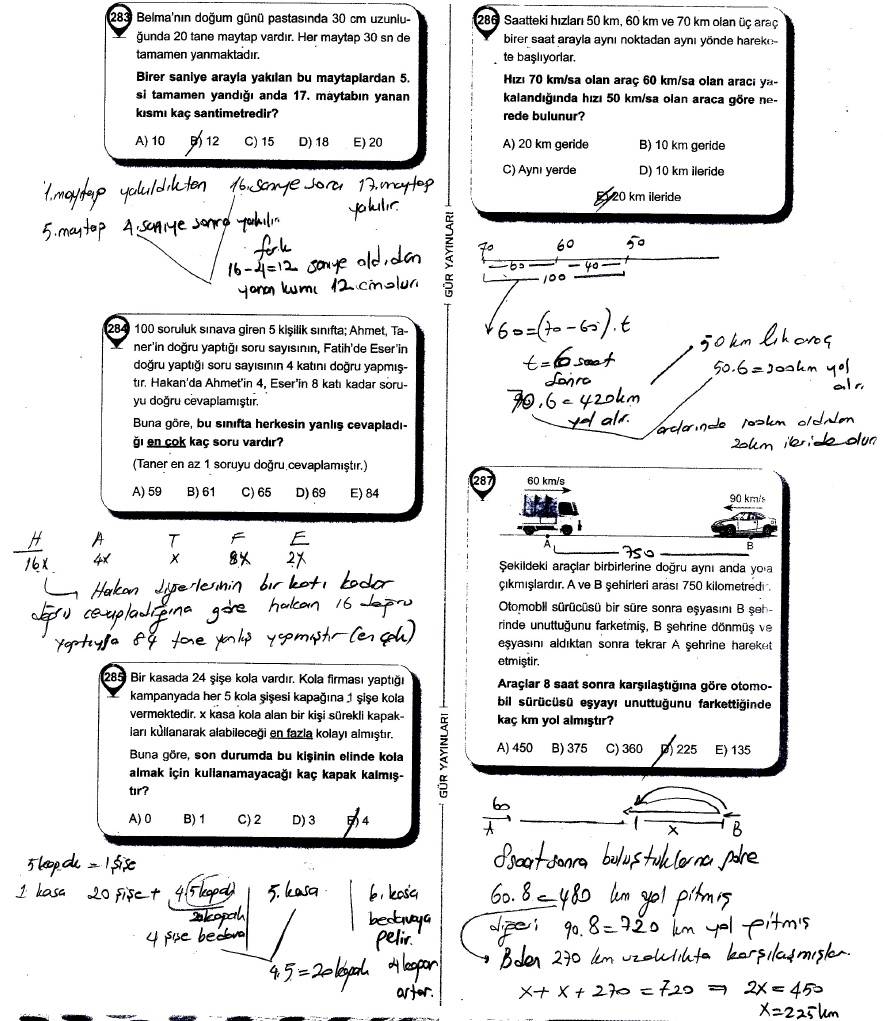 283 Belma'nın doğum günü pastasında 30 cm uzunlu-
ğunda 20 tane maytap vardır. Her maytap 30 sn de
tamamen yanmaktadır.
Birer saniye arayla yakılan bu maytaplardan 5.
si tamamen yandığı anda 17. maytabın yanan
kısmı kaç santimetredir?
A) 10 B) 12 C) 15 D) 18 E) 20
1. maytap yakıldıktan 16. saniye sora 17. maytap
yakılır.
5. maytap 4. saniye sonra yakılır
fark
16-4=12 saniye oldudan
yanan kısmı 12 cm olur
284 100 soruluk sınava giren 5 kişilik sınıfta; Ahmet, Ta-
ner'in doğru yaptığı soru sayısının, Fatih'de Eser'in
doğru yaptığı soru sayısının 4 katını doğru yapmış-
tır. Hakan'da Ahmet'in 4, Eser'in 8 katı kadar soru-
yu doğru cevaplamıştır.
Buna göre, bu sınıfta herkesin yanlış cevapladı-
ğı en çok kaç soru vardır?
(Taner en az 1 soruyu doğru cevaplamıştır.)
A) 59 B) 61 C) 65 D) 69 E) 84
H A T F E
16x 4x x 8x 2x
Hakan diğerlerinin bir katı kadar
doğru cevapladığına göre hakan 16 doğru
yaptıysa 84 tane yanlış yapmıştır (en çok)
285 Bir kasada 24 şişe kola vardır. Kola firması yaptığı
kampanyada her 5 kola şişesi kapağına 1 şişe kola
vermektedir. x kasa kola alan bir kişi sürekli kapak-
ları kullanarak alabileceği en fazla kolayı almıştır.
Buna göre, son durumda bu kişinin elinde kola
almak için kullanamayacağı kaç kapak kalmış-
tır?
A) 0 B) 1 C) 2 D) 3 E) 4
5 kapak = 1 şişe
1 kasa 20 şişe + 4.5 kapak 5. kasa 6. kasa
20 kapak bedavaya
4 şişe bedava gelir.
4.5 = 20 kapak 4 kapak
artar.
GÜR YAYINLARI
GÜR YAYINLARI
286 Saatteki hızları 50 km, 60 km ve 70 km olan üç araç
birer saat arayla aynı noktadan aynı yönde hareke-
te başlıyorlar.
Hızı 70 km/sa olan araç 60 km/sa olan aracı ya-
kalandığında hızı 50 km/sa olan araca göre ne-
rede bulunur?
A) 20 km geride B) 10 km geride
C) Aynı yerde D) 10 km ileride
E) 20 km ileride
70 60 50
60 40
100
60=(70-60).t
t=6 saat
sonra
70.6=420km
yol alır.
50 km lik araç
50.6=300km yol
alır.
aralarında 100km olduğundan
20km ileride olur
287 60 km/s
90 km/s
A 750 B
Şekildeki araçlar birbirlerine doğru aynı anda yola
çıkmışlardır. A ve B şehirleri arası 750 kilometredir.
Otomobil sürücüsü bir süre sonra eşyasını B şeh-
rinde unuttuğunu farketmiş, B şehrine dönmüş ve
eşyasını aldıktan sonra tekrar A şehrine hareket
etmiştir.
Araçlar 8 saat sonra karşılaştığına göre otomo-
bil sürücüsü eşyayı unuttuğunu farkettiğinde
kaç km yol almıştır?
A) 450 B) 375 C) 360 D) 225 E) 135
60
A x B
8 saat sonra buluştuklarına göre
60.8=480 km yol gitmiş
diğeri 90.8=720 km yol gitmiş
B den 270 km uzaklıkta karşılaşmışlar.
x+x+270=720 ⇒ 2x=450
x=225km